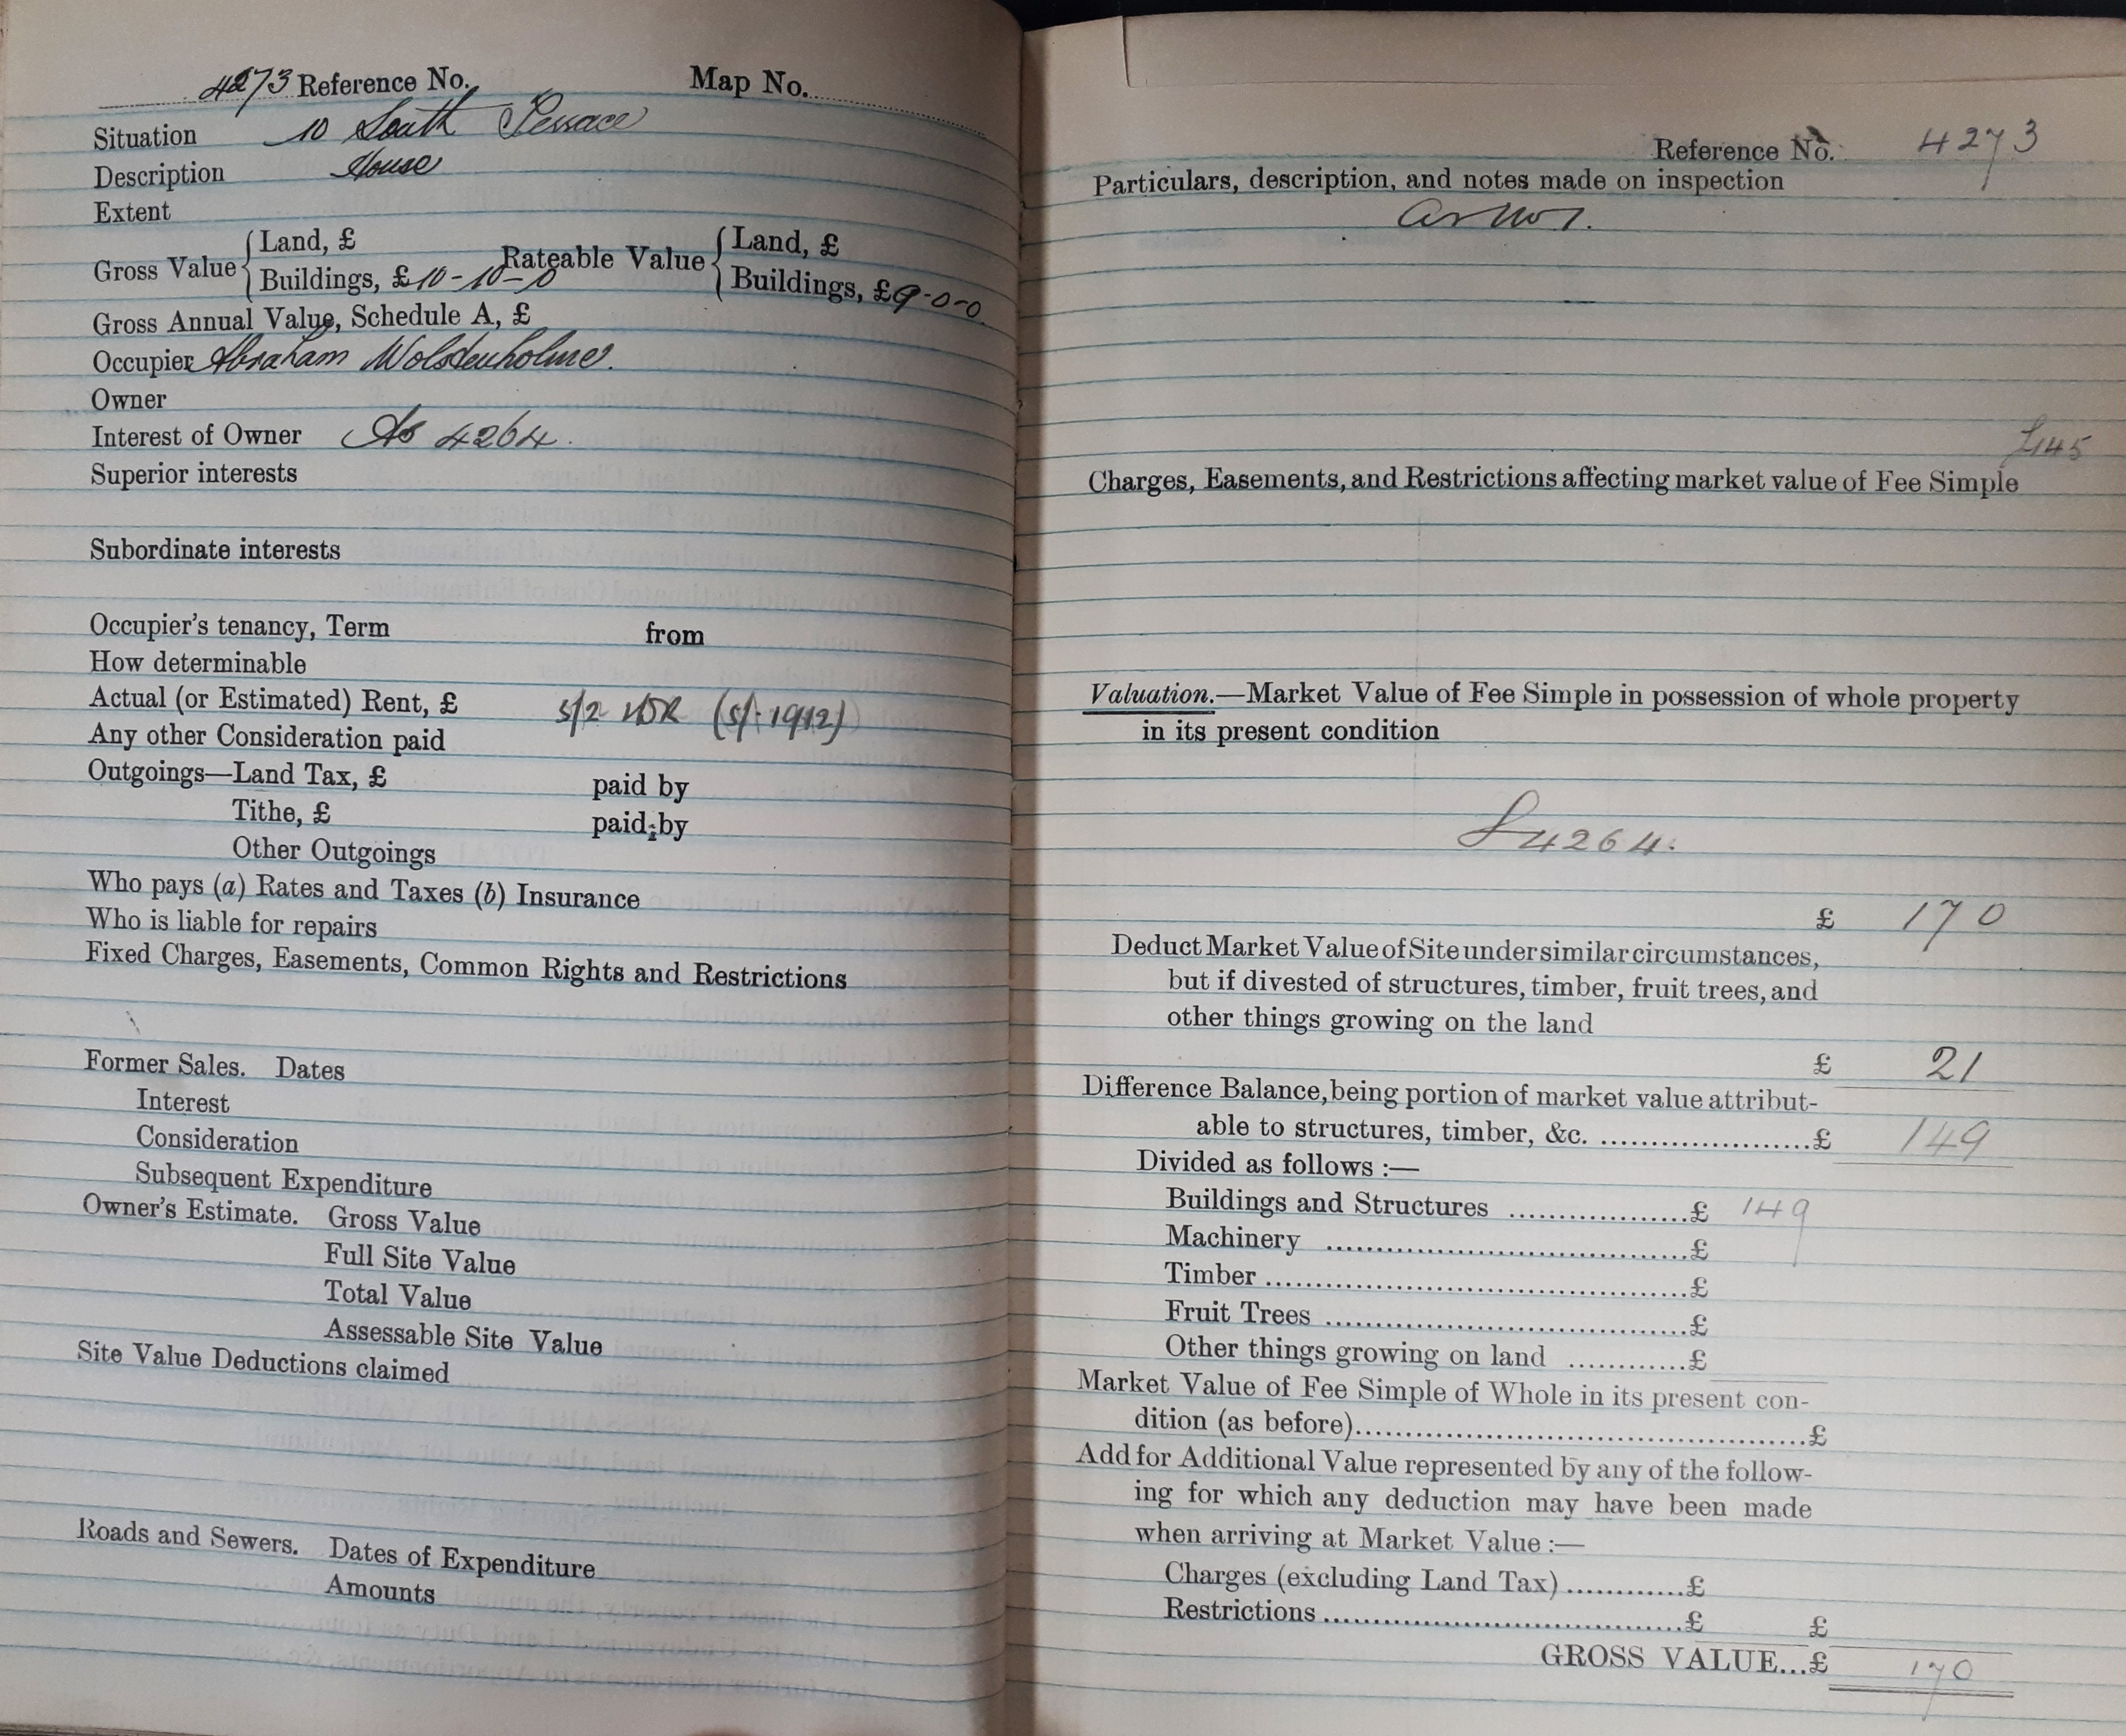 4273 Reference No. Map No.
Situation 10 South Terrace
Description House
Extent
Gross Value { Land, £ Rateable Value { Land, £
Buildings, £ 10-10-0 Buildings, £ 9-0-0
Gross Annual Value, Schedule A, £
Occupier Abraham Wolstenholme.
Owner
Interest of Owner As 4264.
Superior interests
Subordinate interests
Occupier's tenancy, Term from
How determinable
Actual (or Estimated) Rent, £ 5/2 (5/- 1912)
Any other Consideration paid
Outgoings—Land Tax, £ paid by
Tithe, £ paid by
Other Outgoings
Who pays (a) Rates and Taxes (b) Insurance
Who is liable for repairs
Fixed Charges, Easements, Common Rights and Restrictions
Former Sales. Dates
Interest
Consideration
Subsequent Expenditure
Owner's Estimate. Gross Value
Full Site Value
Total Value
Assessable Site Value
Site Value Deductions claimed
Roads and Sewers. Dates of Expenditure
Amounts
Reference No. 4273
Particulars, description, and notes made on inspection
as No 1.
£145
Charges, Easements, and Restrictions affecting market value of Fee Simple
Valuation.—Market Value of Fee Simple in possession of whole property
in its present condition
4264.
£ 170
Deduct Market Value of Site under similar circumstances,
but if divested of structures, timber, fruit trees, and
other things growing on the land
£ 21
Difference Balance, being portion of market value attribut-
able to structures, timber, &c. ......................£ 149
Divided as follows :—
Buildings and Structures ..................£ 149
Machinery ....................................£
Timber ..........................................£
Fruit Trees ....................................£
Other things growing on land ............£
Market Value of Fee Simple of Whole in its present con-
dition (as before)..............................................£
Add for Additional Value represented by any of the follow-
ing for which any deduction may have been made
when arriving at Market Value :—
Charges (excluding Land Tax) ............£
Restrictions ....................................£ £
GROSS VALUE...£ 170